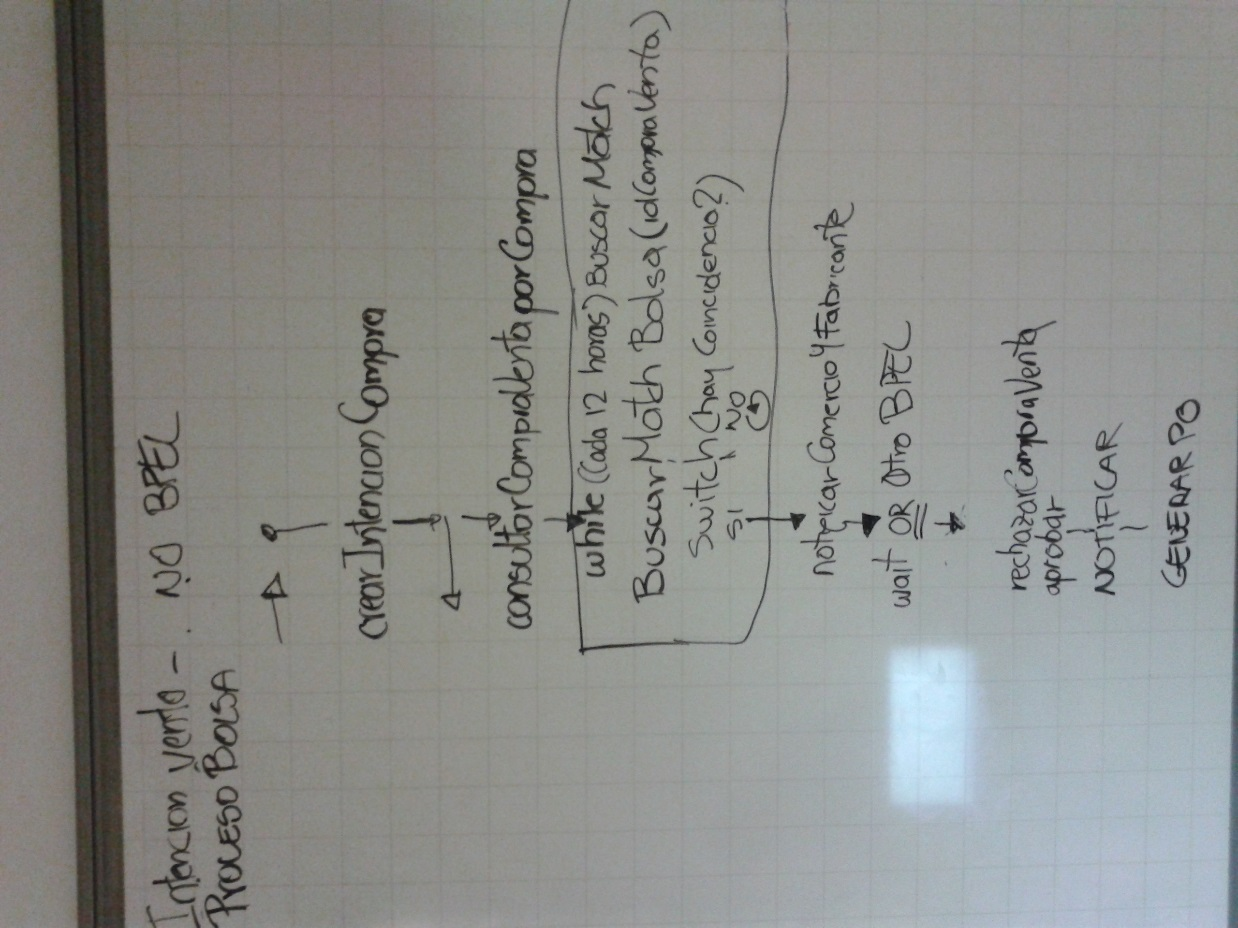 Intencion Venta - . NO BPEL
PROCESO BOLSA
crearIntencionCompra
consultarCompraVentaporCompra
while (Cada 12 horas) Buscar Match
Buscar Match Bolsa (idCompraVenta)
Switch (hay Coincidencia?)
SI NO
notificar Comercio y Fabricante
wait OR Otro BPEL
rechazarCompraVenta
aprobar
NOTIFICAR
GENERAR PO